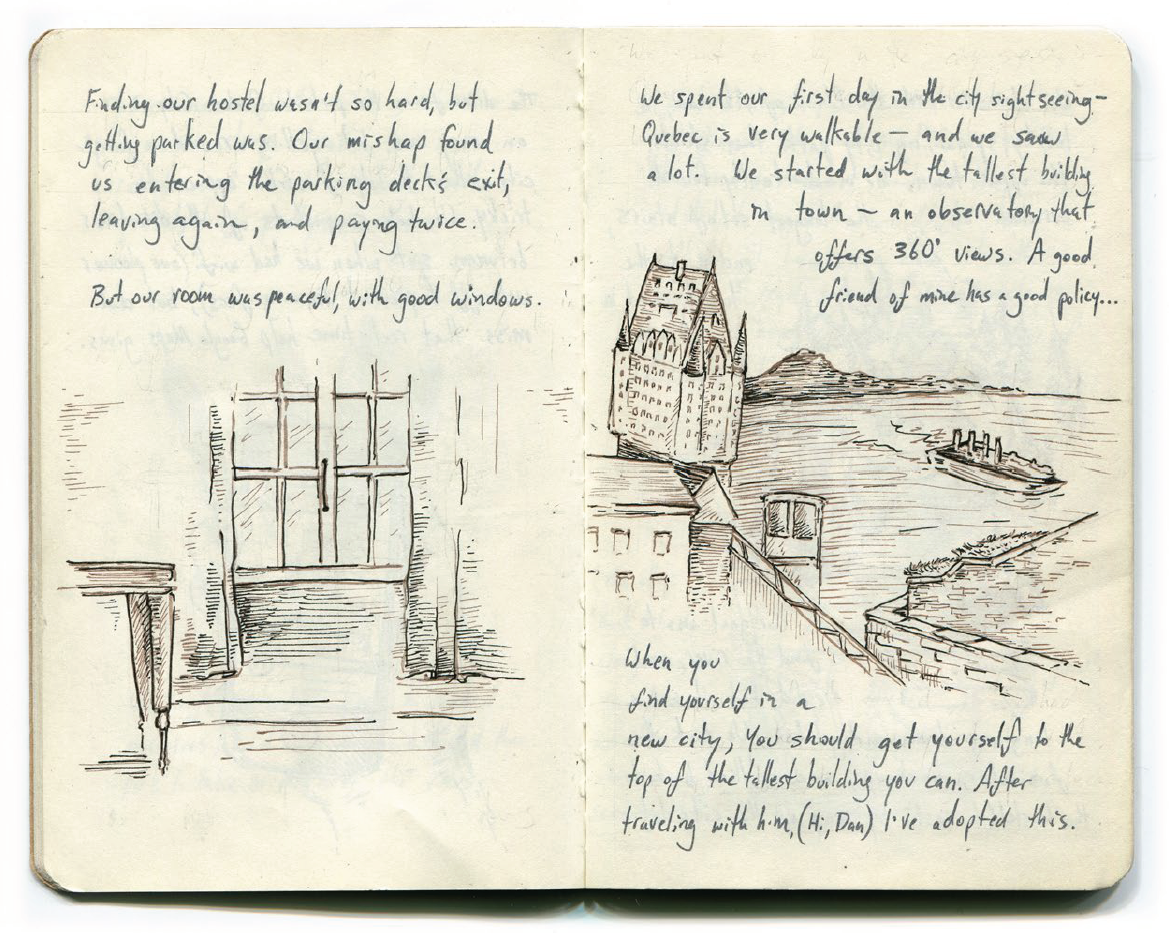 Finding our hostel wasn't so hard, but
getting parked was. Our mishap found
us entering the parking deck's exit,
leaving again, and paying twice.
But our room was peaceful, with good windows.
We spent our first day in the city sightseeing—
Quebec is very walkable — and we saw
a lot. We started with the tallest building
in town — an observatory that
offers 360° views. A good
friend of mine has a good policy...
When you
find yourself in a
new city, you should get yourself to the
top of the tallest building you can. After
traveling with him, (Hi, Dan) I've adopted this.